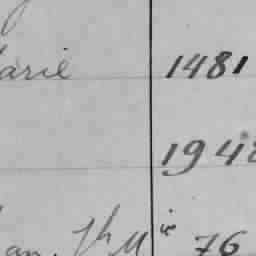 arie 1481
194
an. Jh M ie 76